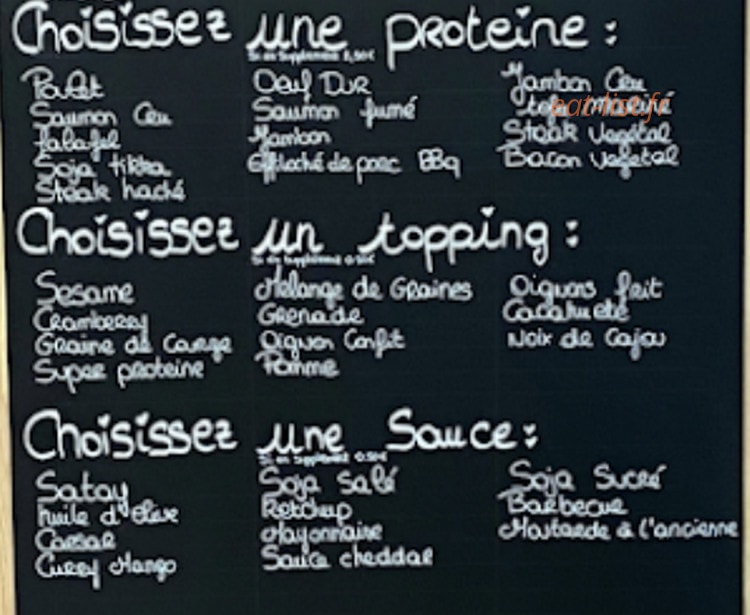 Choisissez une proteine :
Si en supplément 1,50€
Poulet
Saumon Cru
Falafel
Soja tikka
Steak haché
Oeuf Dur
Saumon fumé
Jambon
Effiloché de porc BBq
Jambon Cru
Tofu Mariné
Steak Vegétal
Bacon Vegetal
eat-list.fr
Choisissez un topping :
Si en supplément 0.50€
Sesame
Cramberry
Graine de Courge
Super proteine
Mélange de Graines
Grenade
Oignon Confit
Pomme
Oignons frit
Cacahuete
Noix de Cajou
Choisissez une Sauce :
Si en supplément 0.50€
Satay
huile d'olive
Caesar
Curry Mango
Soja Salé
Ketchup
Mayonnaise
Sauce cheddar
Soja Sucré
Barbecue
Moutarde à l'ancienne